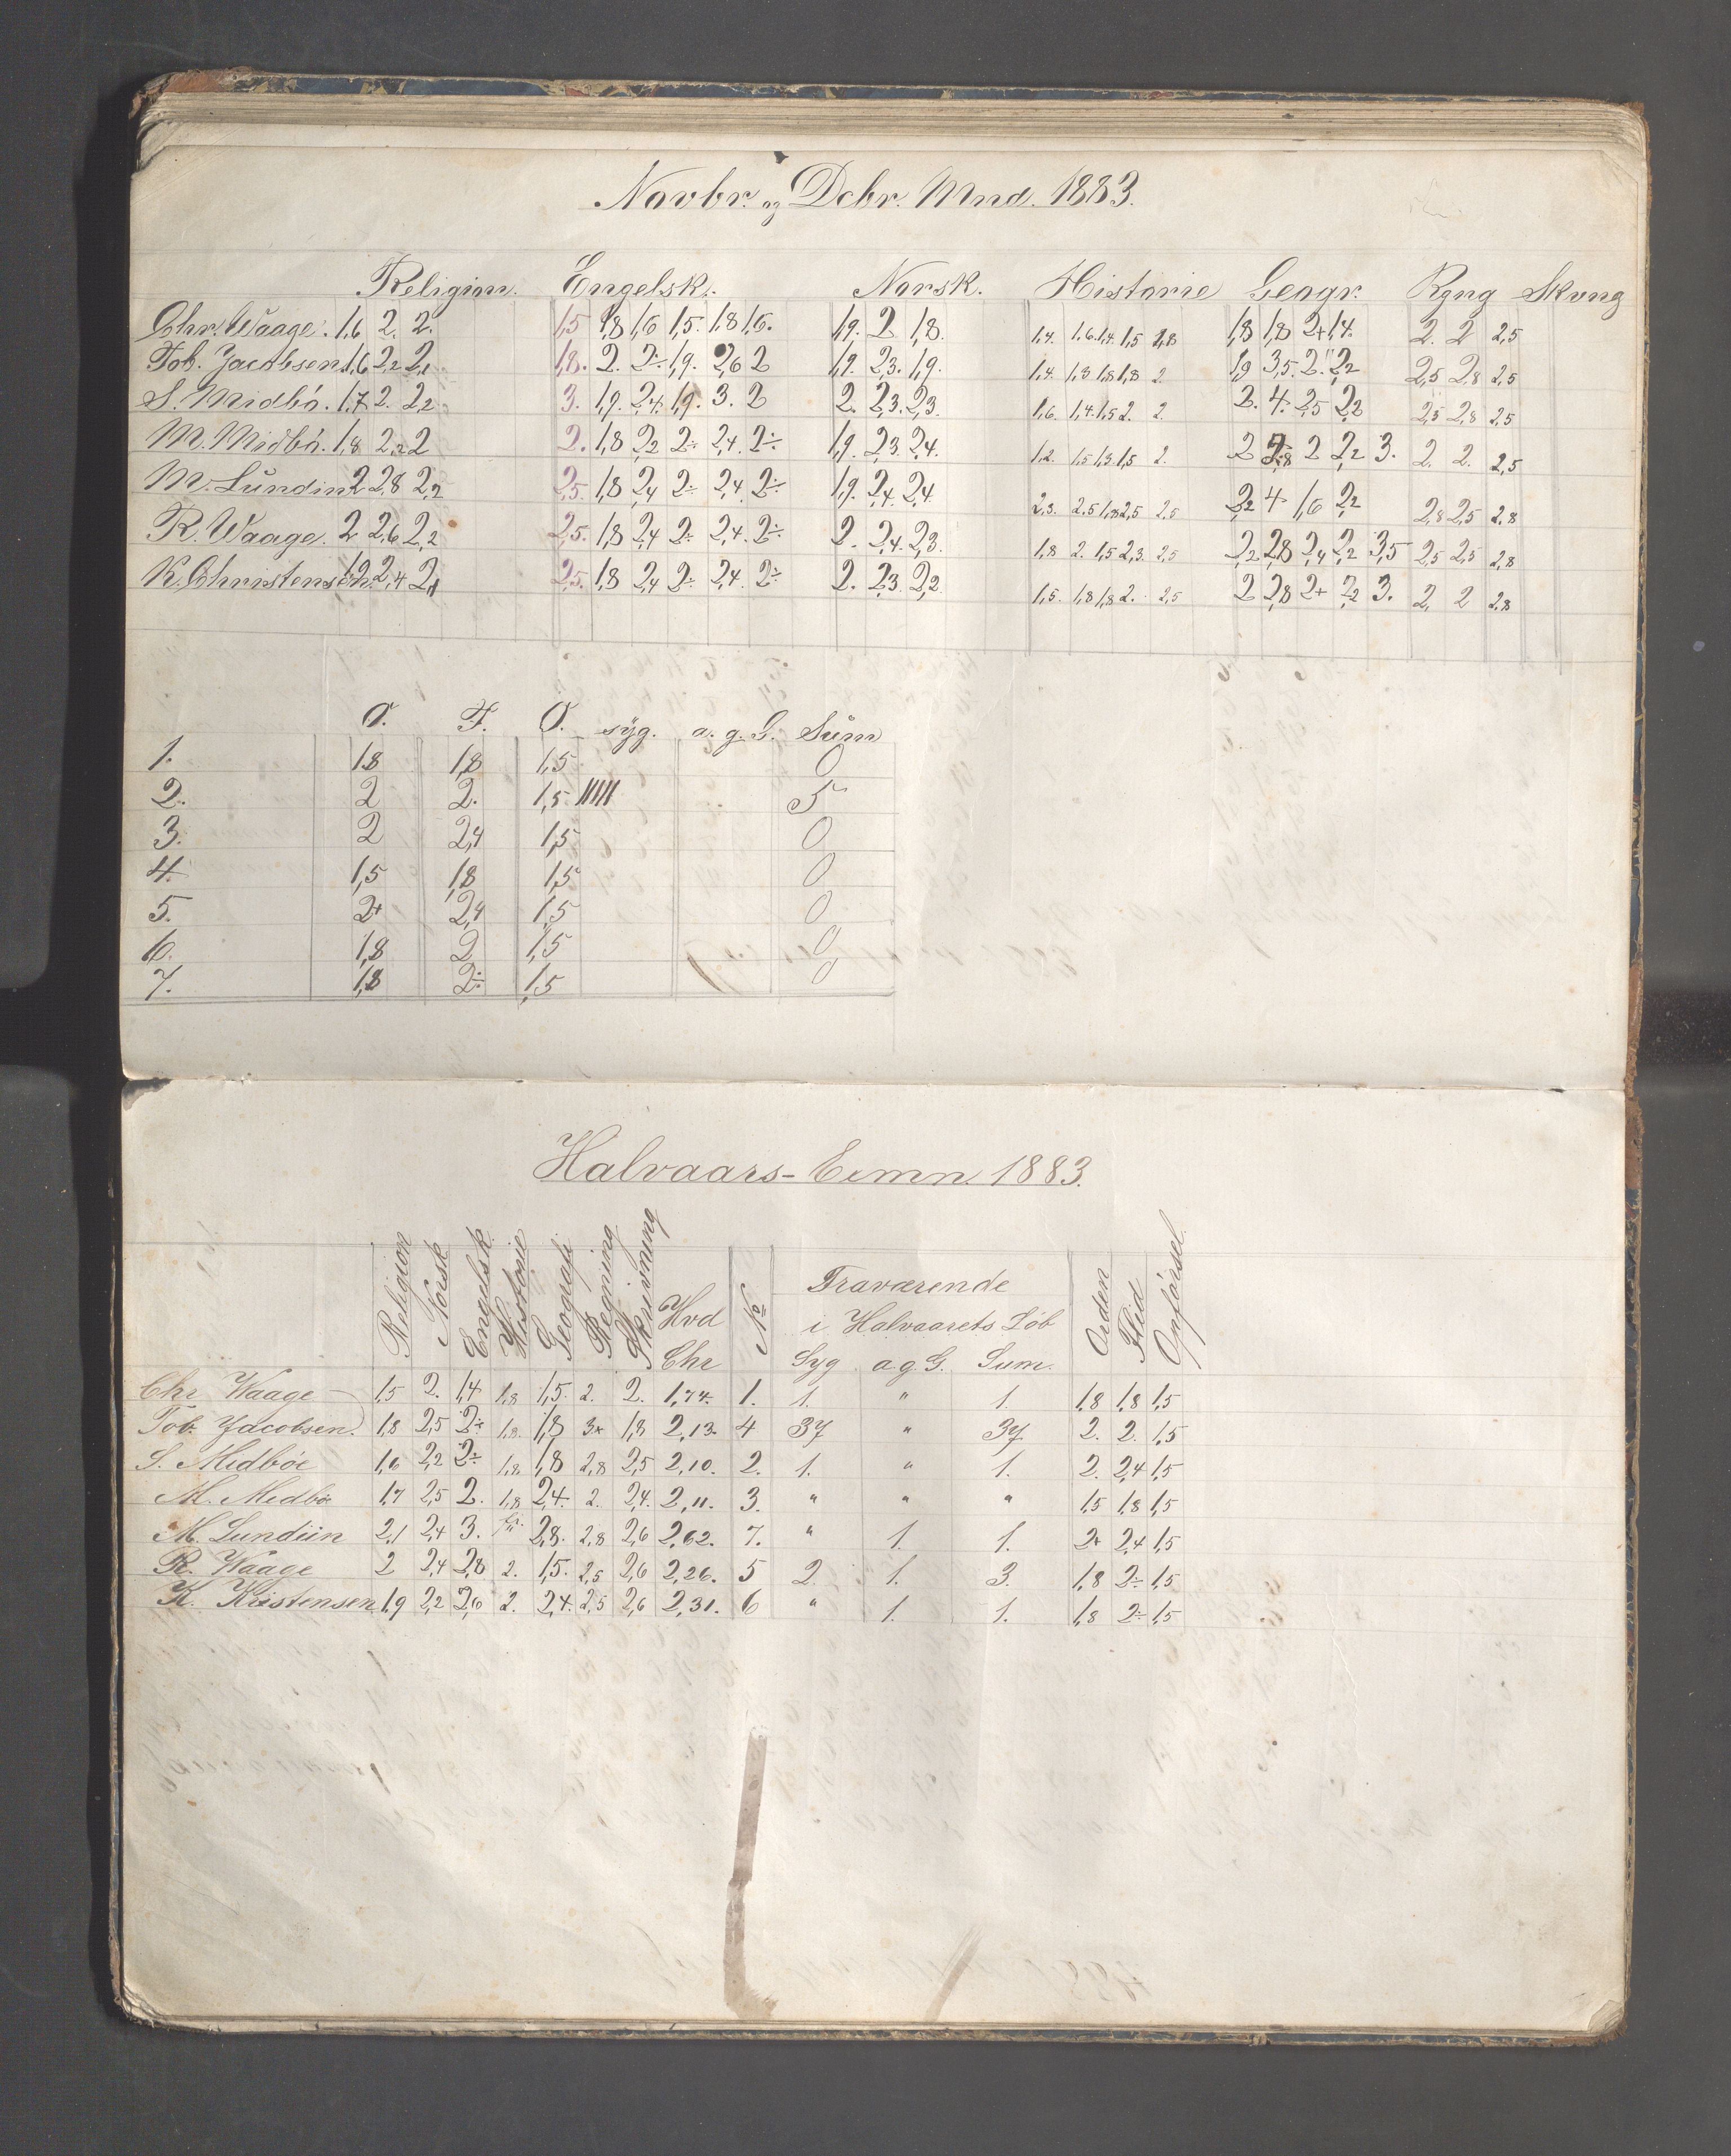 Novbr. og Dcbr. Mnd. 1883.
Religion. Engelsk. Norsk. Historie Geogr. Rgng Skvng
Chr. Waage. 1,6 2. 2. 1,5 1,8 1,6 1,5. 1,8 1,6. 1,9. 2 1,8. 1,4. 1,6. 1,4. 1,5 1,8 1,8 1,8 2+ 1,4. 2. 2 2,5
Tob. Jacobsen 1,6 2,2 2,1 1,8. 2. 2÷ 1,9. 2,6 2 1,9. 2,3. 1,9. 1,4. 1,3 1,8 1,8 2. 1,9 3,5. 2. 2,2 2,5 2,8 2,5
S. Midbö. 1,7 2. 2,2 3. 1,9. 2,4. 1,9. 3. 2 2. 2,3. 2,3. 1,6. 1,4. 1,5 2. 2. 2. 4. 2,5 2,2 2,5 2,8 2,5
M. Midbö. 1,8 2,2 2 2. 1,8 2,2 2÷ 2,4. 2÷ 1,9. 2,3. 2,4. 1,2. 1,5 1,3 1,5 2. 2 2,8 2 2,2 3. 2. 2. 2,5
M. Lundin 2 2,8 2,2 2,5. 1,8 2,4 2÷ 2,4. 2÷ 1,9. 2,4. 2,4. 2,3. 2,5 1,8 2,5 2,5 2,2 4 1,6 2,2 2,8 2,5 2,8
R. Waage. 2 2,6 2,2 2,5. 1,8 2,4 2÷ 2,4. 2÷ 2. 2,4. 2,3. 1,8 2. 1,5 2,3. 2,5 2,2 2,8 2,4 2,2 3,5 2,5 2,5 2,8
K. Christensen. 1,9 2,4 2,1 2,5. 1,8 2,4 2÷ 2,4. 2÷ 2. 2,3. 2,2. 1,5. 1,8 1,8 2. 2,5 2 2,8 2+ 2,2 3. 2, 2 2,8
O. F. O. syg. a. g. G. Sum
1. 1,8 1,8 1,5 0
2. 2 2. 1,5 IIIII 5
3. 2 2,4 1,5 0
4. 1,5 1,8 1,5 0
5. 2+ 2,4 1,5 0
6. 1,8 2 1,5 0
7. 1,8 2÷ 1,5 0
Halvaars-Exmn. 1883.
Religion Norsk Engelsk. Historie Geografi Regning Skrivning Hvd Chr No Fraværende i Halvaarets Löb Syg a.g.G. Sum. Orden Flid Opförsel.
Chr Waage 1,5 2. 1,4 1,8 1,5. 2. 2. 1,74. 1. 1. " 1. 1,8 1,8 1,5
Tob. Jacobsen. 1,8 2,5 2÷ 1,8. 1,8 3+ 1,8 2,13. 4 37 " 37 2. 2. 1,5
S. Midböe 1,6 2,2 2÷ 1,8 1,8 2,8 2,5 2,10. 2. 1. " 1. 2. 2,4 1,5
M. Medbö 1,7 2,5 2. 1,8 2,4. 2. 2,4. 2,11. 3. " " " 1,5 1,8 1,5
M. Lundiin 2,1 2,4 3. 2,8. 2,8 2,6 2,62. 7. " 1. 1. 2+ 2,4 1,5
R. Waage 2 2,4 2,8 2. 1,5. 2,5 2,6 2,26. 5 2. 1. 3. 1,8 2÷ 1,5
K. Kristensen 1,9 2,2 2,6 2. 2,4. 2,5 2,6 2,31. 6 " 1. 1. 1,8 2÷ 1,5